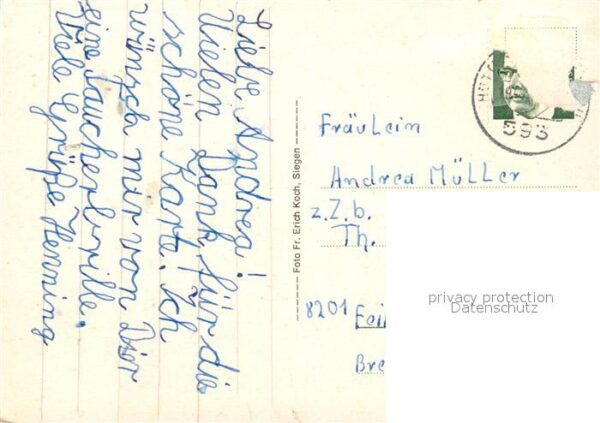 Liebe Andrea!
Vielen Dank für die
schöne Karte. Ich
wünsch mir von Dir
eine Taucherbrille.
Viele Grüße Henning
Foto Fr. Erich Koch, Siegen
593
Fräulein
Andrea Müller
z.Z.b.
Th.
8201 Fei
Bre
privacy protection
Datenschutz